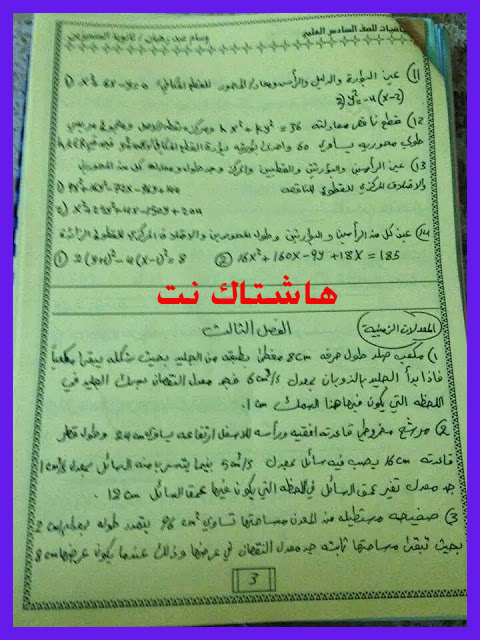 رياضيات للصف السادس العلمي
11) عين البؤرة والدليل والرأس ومعادلة المحور للقطع المكافئ 1) x²+6x-y=0
2) y²=-4(x-2)
12) قطع ناقص معادلته hx²+ky²=36 ومركزه نقطة الاصل ومجموع مربعي
طولي محوريه يساوي 60 واحدى بؤرتيه بؤرة القطع المكافئ
13) عين الرأسين والبؤرتين والقطبين والمركز وطول ومعادلة كل من المحورين
والاختلاف المركزي للقطوع الناقصة
14) عين كل من الرأسين والبؤرتين وطول المحورين والاختلاف المركزي للقطوع الزائدة
① 2(y+1)²-4(x-1)²=8 ② 16x²+160x-9y²+18y=185
هاشتاك نت
المعدلات الزمنية الفصل الثالث
1) مكعب صلد طول حرفه 8cm مغطى بطبقة من الجليد بحيث شكله يبقى مكعباً
فاذا بدأ الجليد بالذوبان بمعدل 6cm³/s فجد معدل النقصان بسمك الجليد في
اللحظة التي يكون فيها هذا السمك 1cm.
2) مرشح مخروطي قاعدته افقية ورأسه للاسفل ارتفاعه يساوي 24cm وطول قطر
قاعدته 16cm يصب فيه سائل بمعدل 5cm³/s بينما يتسرب منه السائل بمعدل 1cm³/s
جد معدل تغير عمق السائل في اللحظة التي يكون فيها عمق السائل 12cm.
3) صفيحة مستطيلة من المعدن مساحتها تساوي 96cm² يتمدد طولها بمعدل 2cm/s
بحيث تبقى مساحتها ثابتة جد معدل النقصان في عرضها وذلك عندما يكون عرضها 8cm
3